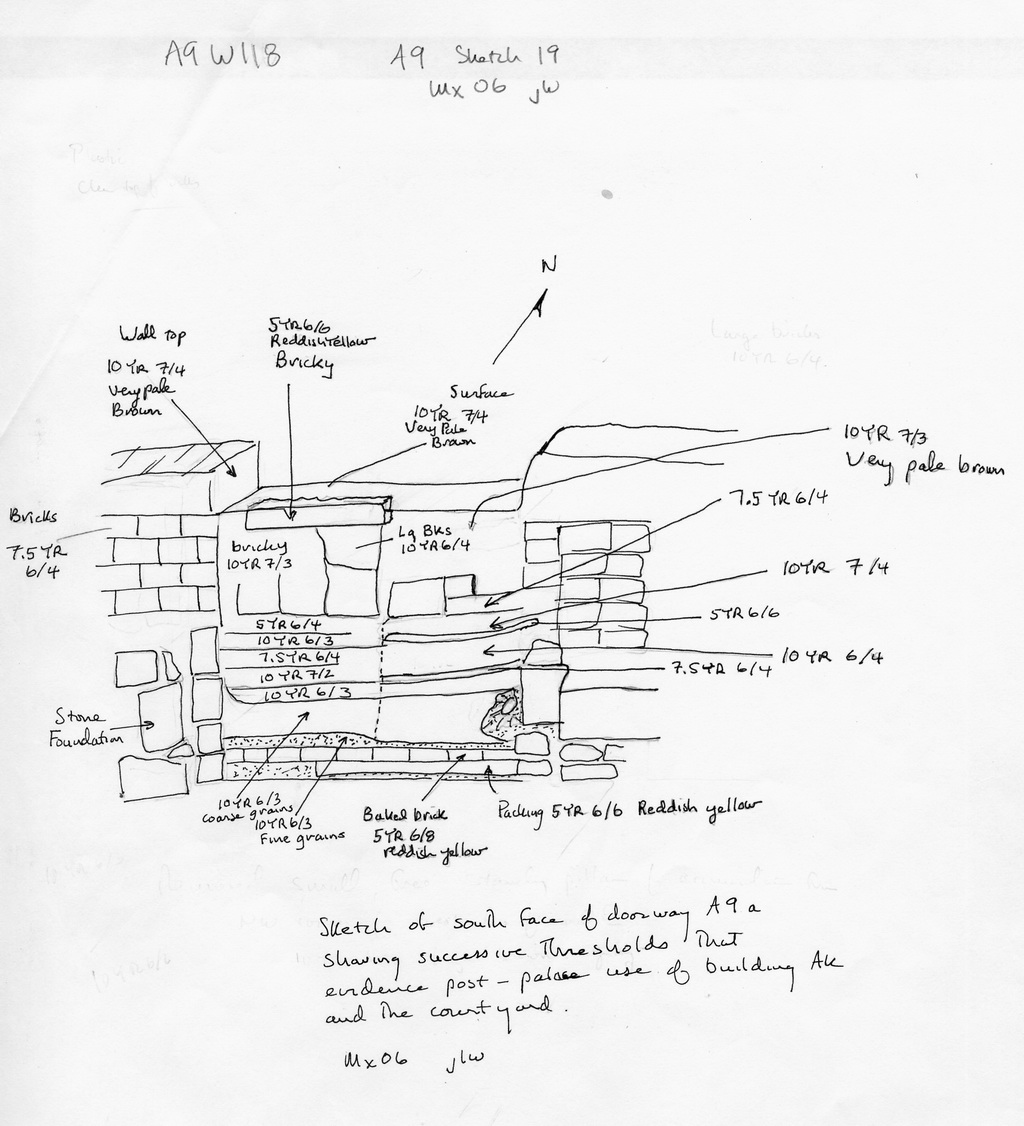 A9 W118
A9 Sketch 19
Mx06 jw
N
Wall top
10 YR 7/4
very pale
Brown
5YR6/6
Reddish yellow
Bricky
Surface
10YR 7/4
Very Pale
Brown
10YR 7/3
Very pale brown
7.5 YR 6/4
Bricks
7.5 YR
6/4
bricky
10YR 7/3
Lg Bks
10YR 6/4
10YR 7/4
5YR 6/4
10YR 6/3
7.5YR 6/4
10YR 7/2
10YR 6/3
5YR 6/6
10YR 6/4
7.5YR 6/4
Stone
Foundation
10YR 6/3
coarse grains
10YR 6/3
Fine grains
Baked brick
5YR 6/8
reddish yellow
Packing 5YR 6/6 Reddish yellow
Large bricks
10YR 6/4.
Sketch of south face of doorway A9 a
showing successive thresholds that
evidence post-palace use of building AK
and the courtyard.
Mx06 jlw